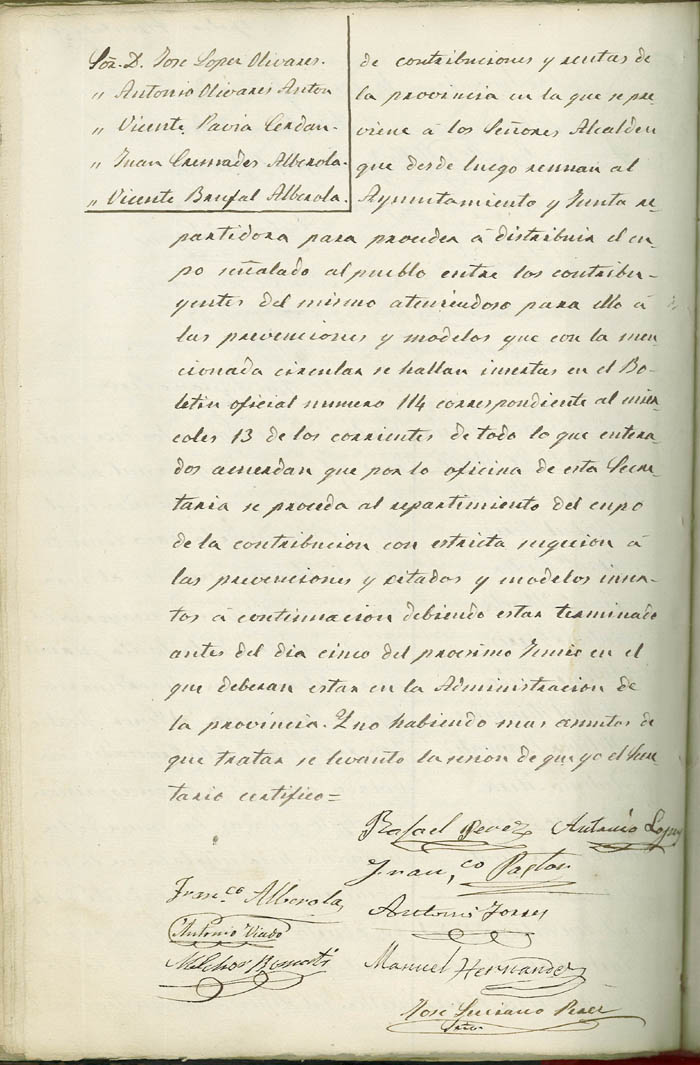 Sōr. D. Jose Lopez Olivares.
" Antonio Olivares Anton
" Vicente Pavia Cerdan.
" Juan Cremades Alberola.
" Vicente Brufal Alberola.
de contribuciones y rentas de
la provincia en la que se pre
viene á los Señores Alcaldes
que desde luego reunan al
Ayuntamiento y Junta re
partidora para proceder á distribuir el cu
po señalado al pueblo entre los contribu-
yentes del mismo ateniendose para ello á
las prevenciones y modelos que con la men
cionada circular se hallan insertas en el Bo-
letin oficial numero 114 correspondiente al mier
coles 13 de los corrientes de todo lo que entera-
dos acuerdan que por lo oficina de esta Secre
taria se proceda al repartimiento del cupo
de la contribucion con estricta sugecion á
las prevenciones y estados y modelos inser-
tos á continuacion debiendo estar terminado
antes del dia cinco del procsimo Junio en el
que deberan estar en la Administracion de
la provincia. Y no habiendo mas asuntos de
que tratar se levanto la sesion de que yo el Secre
tario certifico=
Rafael Perez Antonio Lopez
Fran,co Pastor
Franco Alberola
Antonio Torres
Antonio Viudo
Melchor
Manuel Hernandez
José Luciano Perez
Srio.